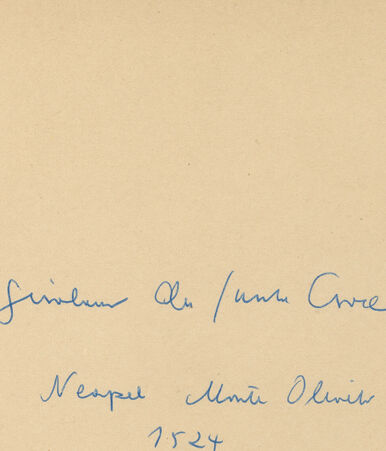 Girolamo da Santa Croce
Neapel Monte Oliveto
1524